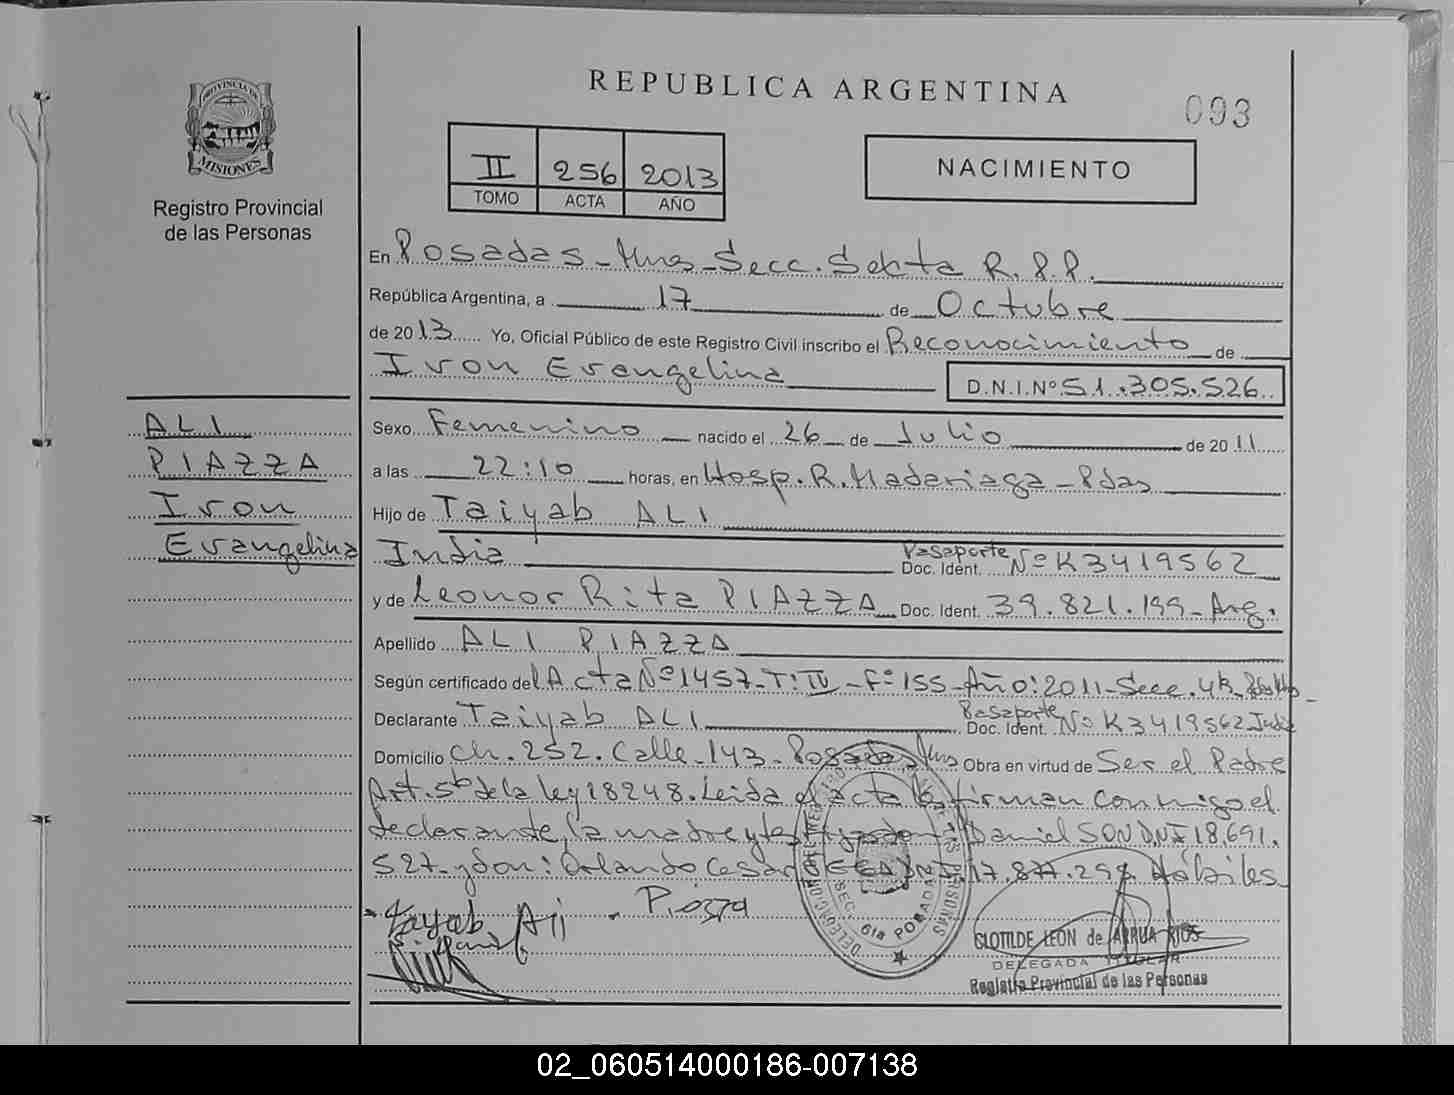 PROVINCIA DE
MISIONES
Registro Provincial
de las Personas
REPUBLICA ARGENTINA
093
II 256 2013
TOMO ACTA AÑO
NACIMIENTO
En Posadas - Mnes - Secc. Sexta R.P.P.
República Argentina, a 17 de Octubre
de 2013 Yo, Oficial Público de este Registro Civil inscribo el Reconocimiento de
Iron Evangelina D.N.I.Nº 51.305.526
ALI
PIAZZA
Iron
Evangelina
Sexo Femenino nacido el 26 de Julio de 2011
a las 22:10 horas, en Hosp. R. Madariaga - Pdas
Hijo de Taiyab ALI
India Pasaporte Doc. Ident. Nº K3419562
y de Leonor Rita PIAZZA Doc. Ident. 39.821.199 - Arg.
Apellido ALI PIAZZA
Según certificado del Acta Nº 1457 - T: IV - Fº 155 - Año: 2011 - Secc. 4ta
Declarante Taiyab ALI Pasaporte Doc. Ident. Nº K3419562 India
Domicilio Ch. 252. Calle 143 - Posadas Mns Obra en virtud de Ser el Padre
Art. 5to de la ley 18248. Leida el acta la firman conmigo el
declarante, la madre y testigos don: Daniel SON DNI 18.691.
527 y don: Orlando Cesar DNI. 17.877.298 Hábiles
Tayab Ali Piazza
6ta POSADAS
CLOTILDE LEON de ARRUA RIOS
DELEGADA TITULAR
Registro Provincial de las Personas
02_060514000186-007138